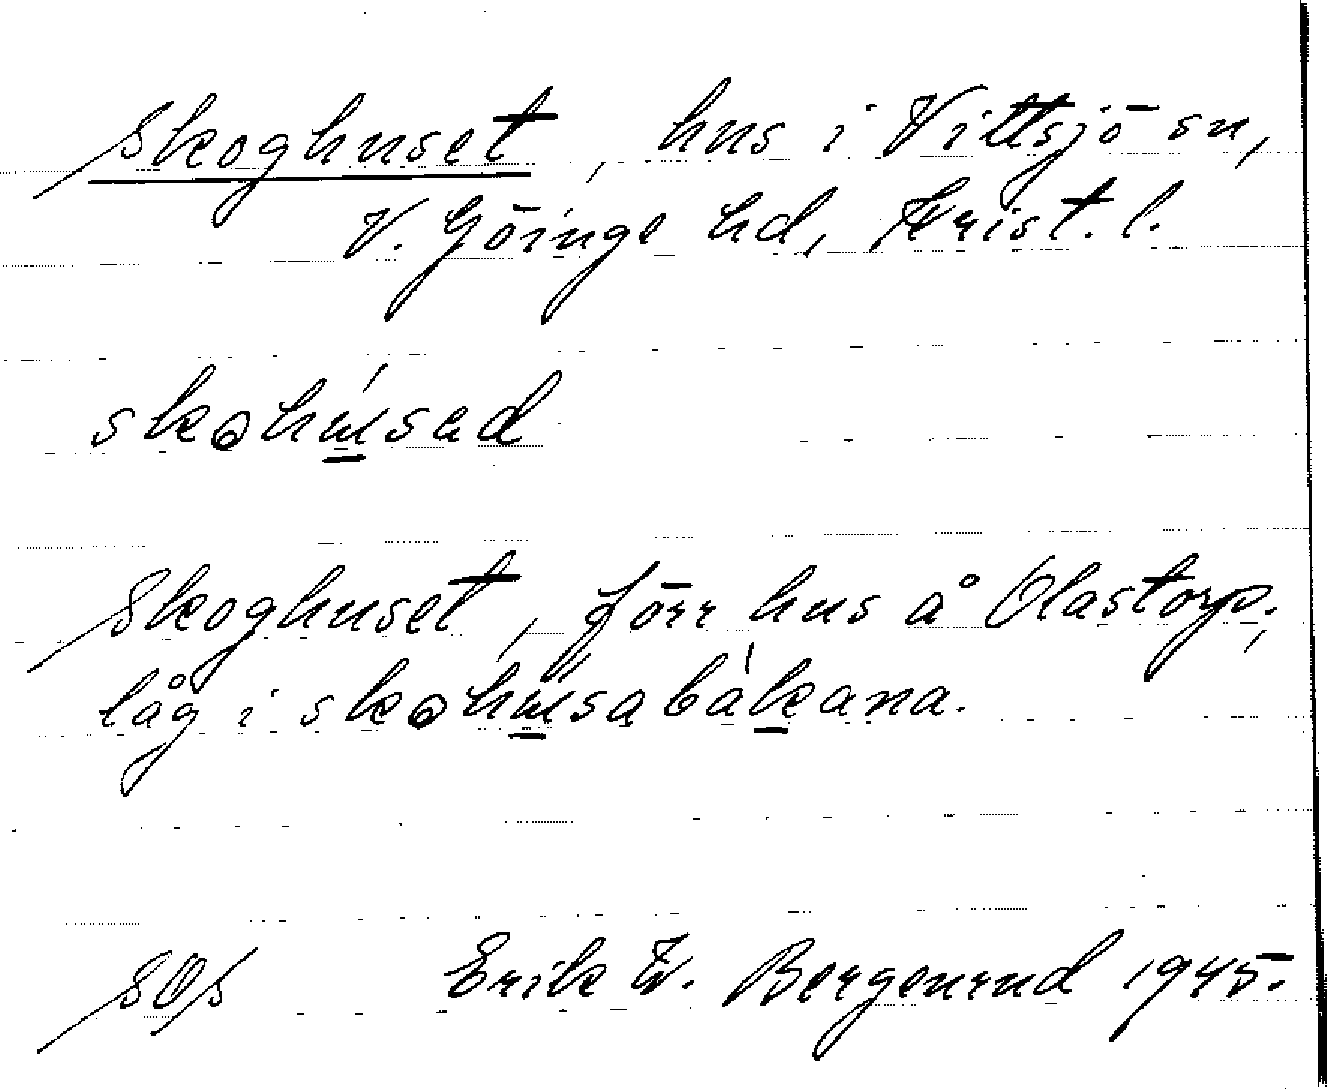 Skoghuset, hus i Vittsjö sn,
V. Göinge hd, Krist. l.
skohúsad
Skoghuset, förr hus å Olastorp;
låg i skohúsabákana.
Erik W. Bergenrud 1945.